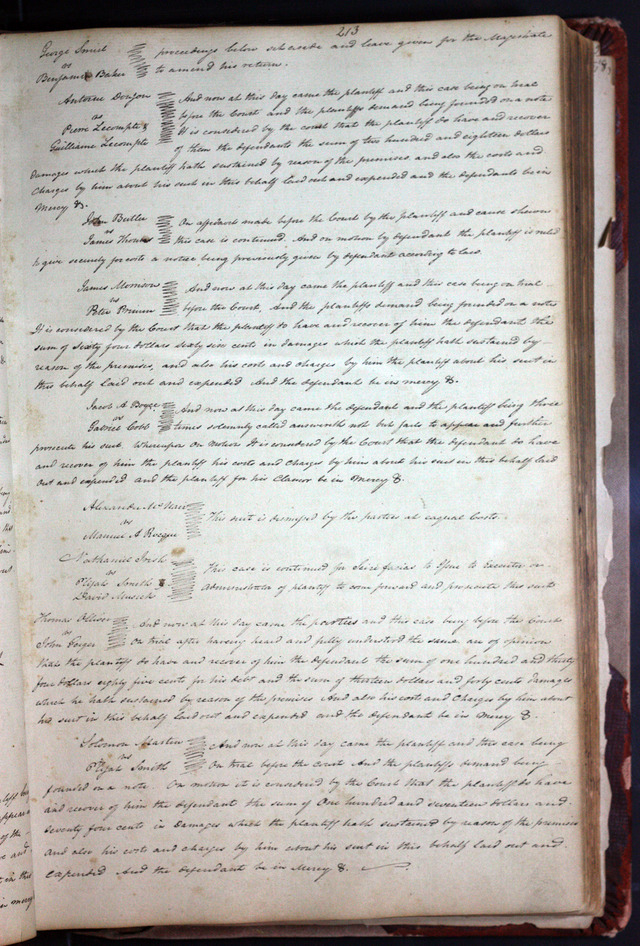 213
George Smith } proceedings below set aside and leave given for the Magistrate
vs
Benjamin Baker } to amend his return.
Antoine } And now at this day came the plaintiff and this case being on trial
vs before the Court and the plaintiffs demand being founded on a note
Pierre Lecompte & } It is considered by the court that the plaintiff do have and recover
Guillaume Lecompte of them the defendants the sum of two hundred and eighteen dollars
damages which the plaintiff hath sustained by reason of the premises and also the costs and
Charges by him about his suit in this behalf laid out and expended and the defendants be in
Mercy &.
John Butler } On affidavit made before the Court by the plaintiff and cause shewn
vs
James Thomas } this case is continued. And on motion by defendant the plaintiff is ruled
to give security for costs a notice being previously given by defendant according to law.
James Morrison } And now at this day came the plaintiff and this case being on trial
vs
Peter } before the Court, And the plaintiffs demand being founded on a note
It is considered by the Court that the plaintiff to have and recover of him the defendant the
sum of Sixty four dollars sixty six cents in damages which the plaintiff hath sustained by
reason of the premises, and also his costs and charges by him the plaintiff about his suit in
this behalf laid out and expended And the defendant be in mercy &.
Jacob A Boyce } And now at this day came the defendant and the plaintiff being three
vs
Gabriel Cobb } times solemnly called answereth not but fails to appear and further
prosecute his suit. Whereupon on motion It is considered by the Court that the defendant do have
and recover of him the plaintiff his costs and Charges by him about his suit in this behalf laid
out and expended and the plaintiff for his Clamor be in Mercy &.
Alexander McNair }
vs This suit is dismissed by the parties at equal Costs.
Maurice A }
Nathaniel } This case is continued for Scire facias to Issue to Executor or
vs
Elijah Smith & } Administrator of plaintiff to come forward and prosecute this suit
David Musick
Thomas Oliver } And now at this day came the parties and this case being before the Court
vs
John } On trial after having heard and fully understood the same are of opinion
that the plaintiff do have and recover of him the defendant the sum of one hundred and thirty
four dollars eighty five cents for his debt and the sum of thirteen dollars and forty cents damages
which he hath sustained by reason of the premises And also his costs and Charges by him about
his suit in this behalf laid out and expended and the defendant be in Mercy &.
Solomon Martin } And now at this day came the plaintiff and this case being
vs
Elijah Smith } On trial before the Court And the plaintiffs demand being
founded on a note. On motion it is considered by the Court that the plaintiff do have
and recover of him the defendant the sum of One hundred and seventeen dollars and
seventy four cents in Damages which the plaintiff hath sustained by reason of the premises
And also his costs and charges by him about his suit in this behalf laid out and
expended And the defendant be in Mercy &.